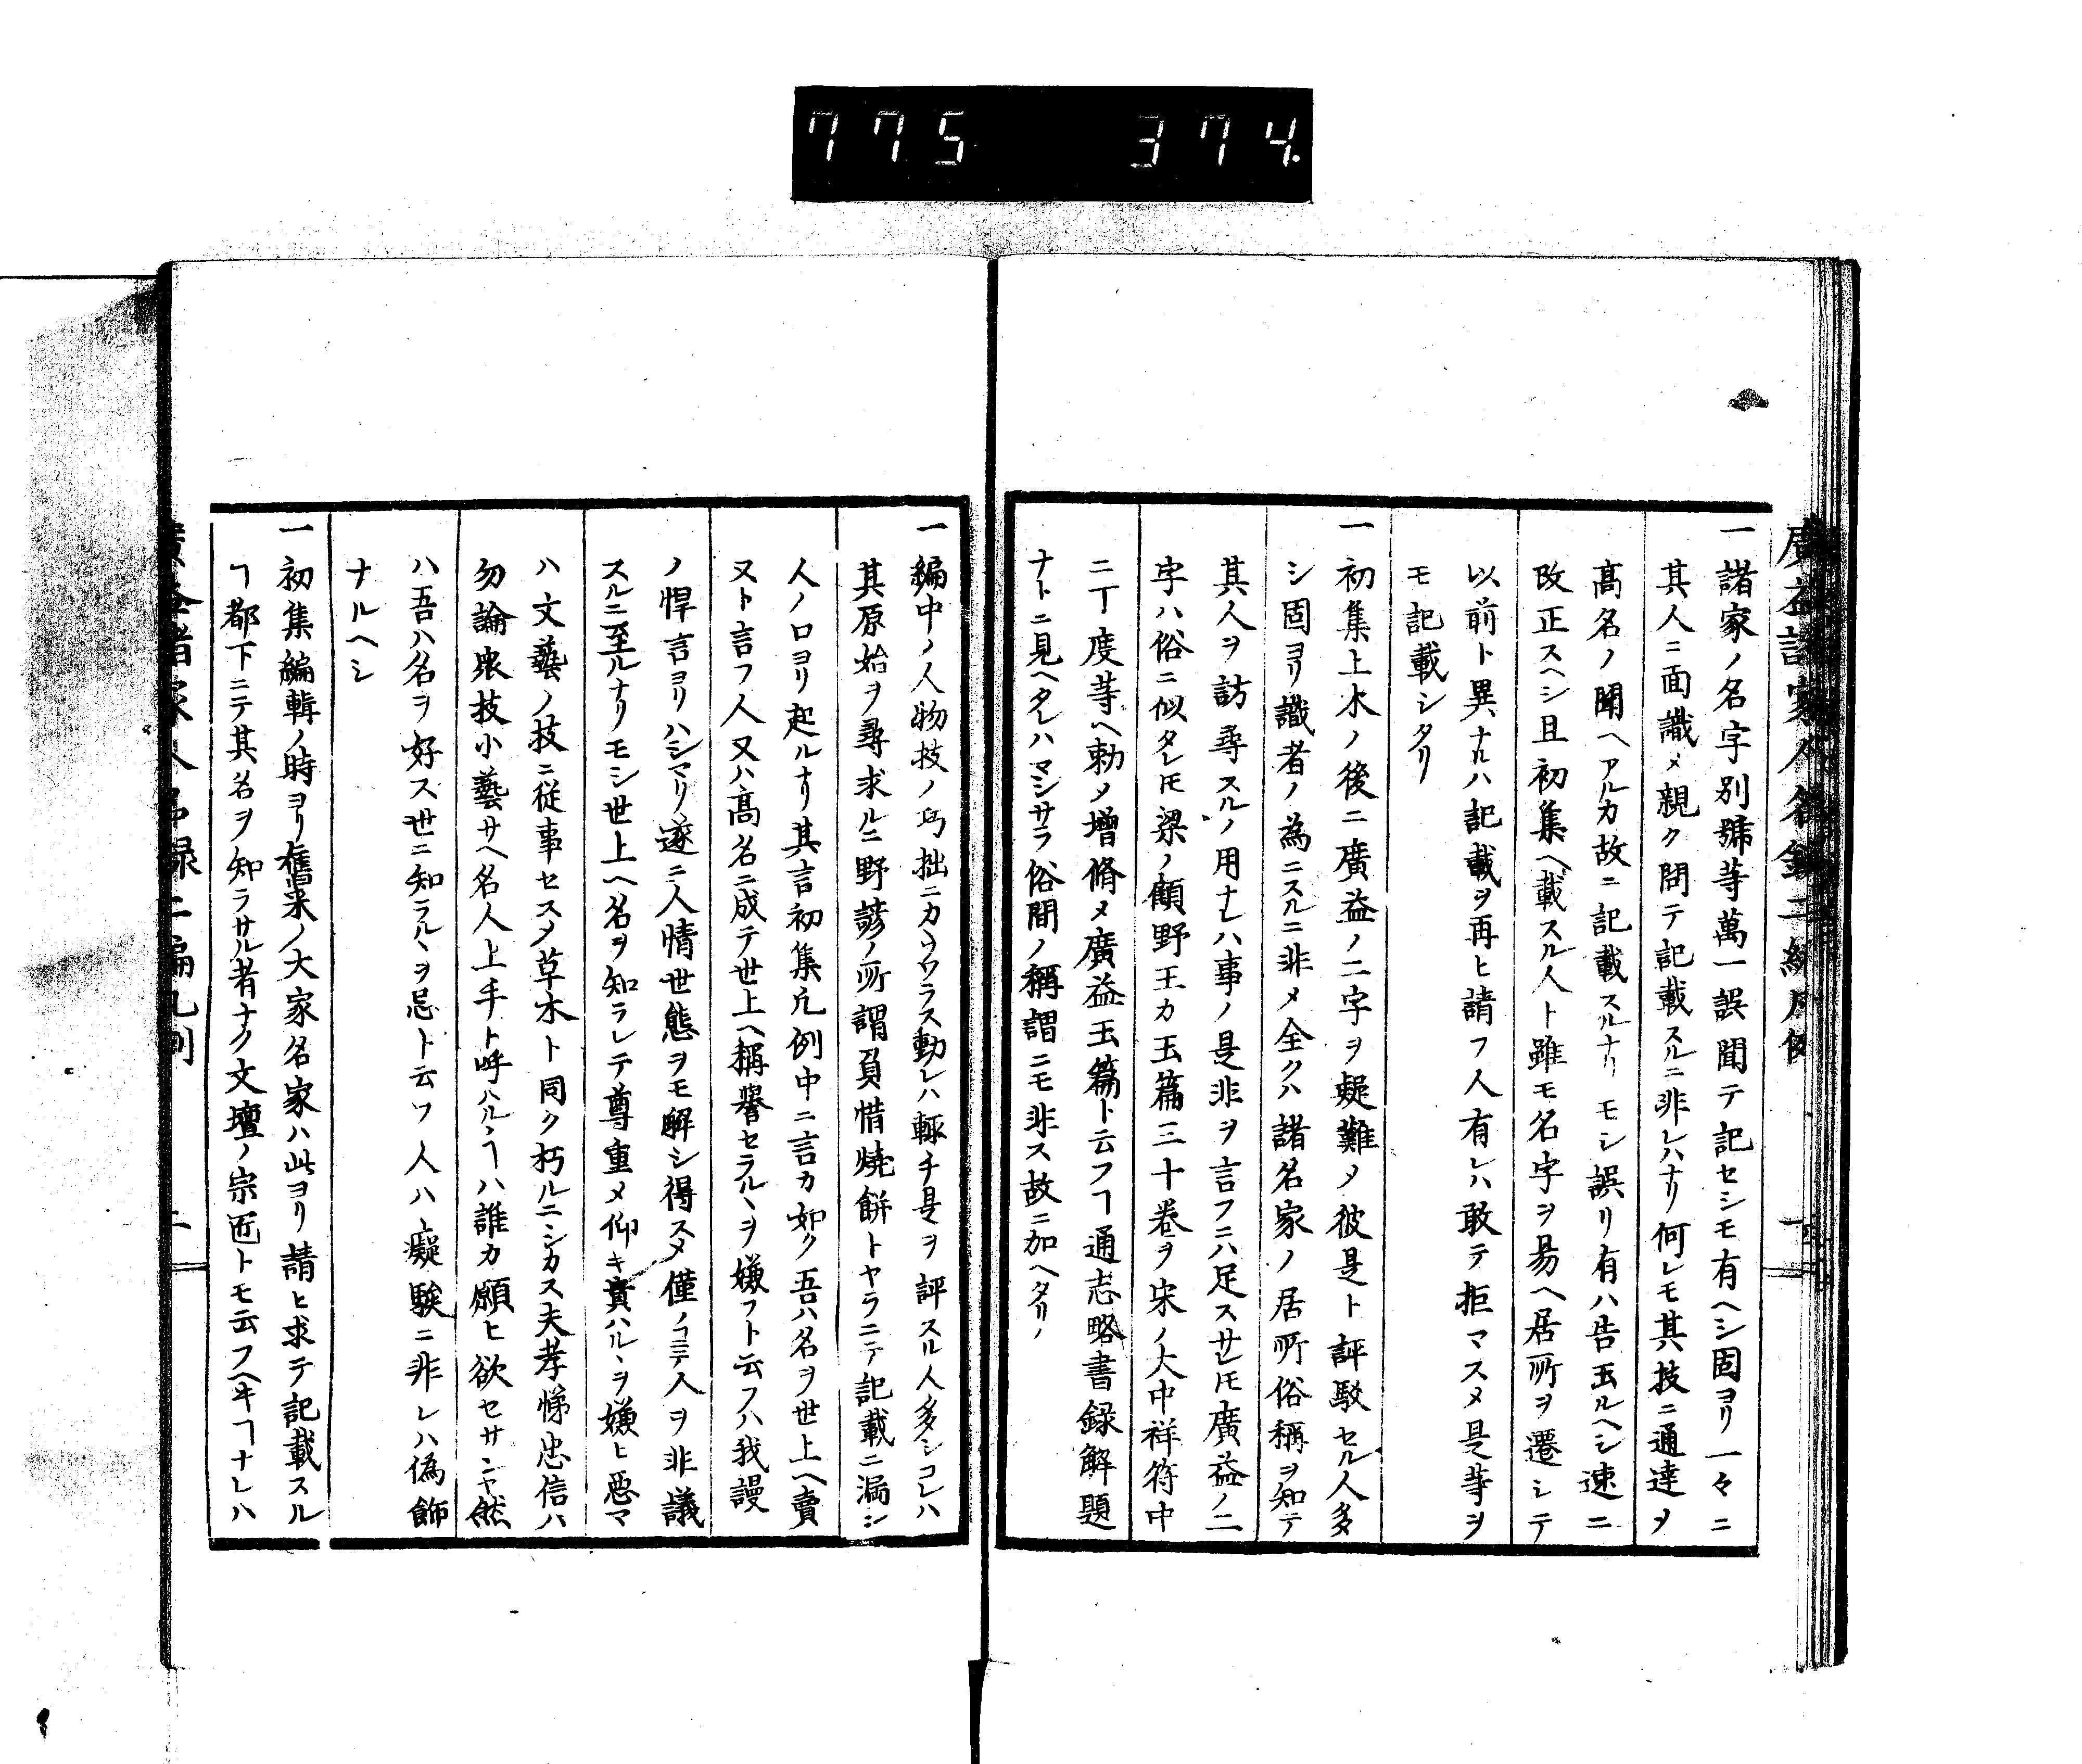 775 374.
一諸家ノ名字別號等萬一誤聞テ記セシモ有ヘシ固ヨリ一々ニ
其人ニ面識〆親ク問テ記載スルニ非レハナリ何レモ其技ニ通達〆
髙名ノ聞ヘアルカ故ニ記載スルナリモシ誤リ有ハ告玉ルヘシ速ニ
改正スヘシ且初集ヘ載スル人ト雖モ名字ヲ易ヘ居所ヲ遷シテ
以前ト異ナルハ記載ヲ再ヒ請フ人有レハ敢テ拒マス〆是等ヲ
モ記載シタリ
一初集上木ノ後ニ廣益ノ二字ヲ疑難〆彼是ト評駁セル人多
シ固ヨリ識者ノ為ニスルニ非〆全クハ諸名家ノ居所俗稱ヲ知テ
其人ヲ訪尋スルノ用ナレハ事ノ是非ヲ言フニハ足スサレ𪜈廣益ノ二
字ハ俗ニ似タレ𪜈梁ノ顧野王カ玉篇三十巻ヲ宋ノ大中祥符中
ニ丁度等ヘ勅〆增脩〆廣益玉篇ト云フヿ通志略書録解題
ナトニ見ヘタレハマシサラ俗間ノ稱謂ニモ非ス故ニ加ヘタリ
一編中ノ人物技ノ巧拙ニカヽワラス動レハ輙チ是ヲ評スル人多シコレハ
其原始ヲ尋求ルニ野諺ノ所謂負惜焼餅トヤラニテ記載ニ漏シ
人ノ口ヨリ起ルナリ其言初集凢例中ニ言カ如ク吾ハ名ヲ世上ヘ賣
又ト言フ人又ハ髙名ニ成テ世上ヘ稱譽セラルヽヲ嫌フト云フハ我謾
ノ悍言ヨリハシマリ遂ニ人情世態ヲモ解シ得ス〆僅ノヿニテ人ヲ非議
スルニ至ルナリモシ世上ヘ名ヲ知ラレテ尊重〆仰キ貴ハルヽヲ嫌ヒ惡マ
ハ文藝ノ技ニ従事セス〆草木ト同ク朽ルニシカス夫孝悌忠信ハ
勿論衆技小藝サヘ名人上手ト呼ハルヽヿハ誰カ願ヒ欲セサンヤ然
ハ吾ハ名ヲ好ス世ニ知ラルヽヲ忌ト云フ人ハ癡騃ニ非レハ偽飾
ナルヘシ
一初集編輯ノ時ヨリ舊来ノ大家名家ハ此ヨリ請ヒ求テ記載スル
ヿ都下ニテ其名ヲ知ラサル者ナク文壇ノ宗匠トモ云フヘキヿナレハ
廣益諸家人名録二編凡例 二